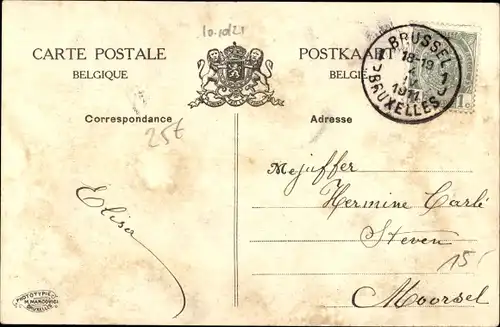 10.10/21
CARTE POSTALE
BELGIQUE
POSTKAART
BELGIË
BRUSSEL
18-19
1911
BRUXELLES
1
1c
Correspondance
25€
Adresse
Mejuffer
Hermine Carlé
Steven
15
Moorsel
Elisa
PHOTOTYPIE
M. MARCOVICI
BRUXELLES